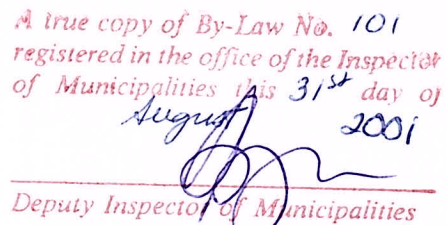 A true copy of By-Law No. 101
registered in the office of the Inspector
of Municipalities this 31st day of
August 2001
Deputy Inspector of Municipalities